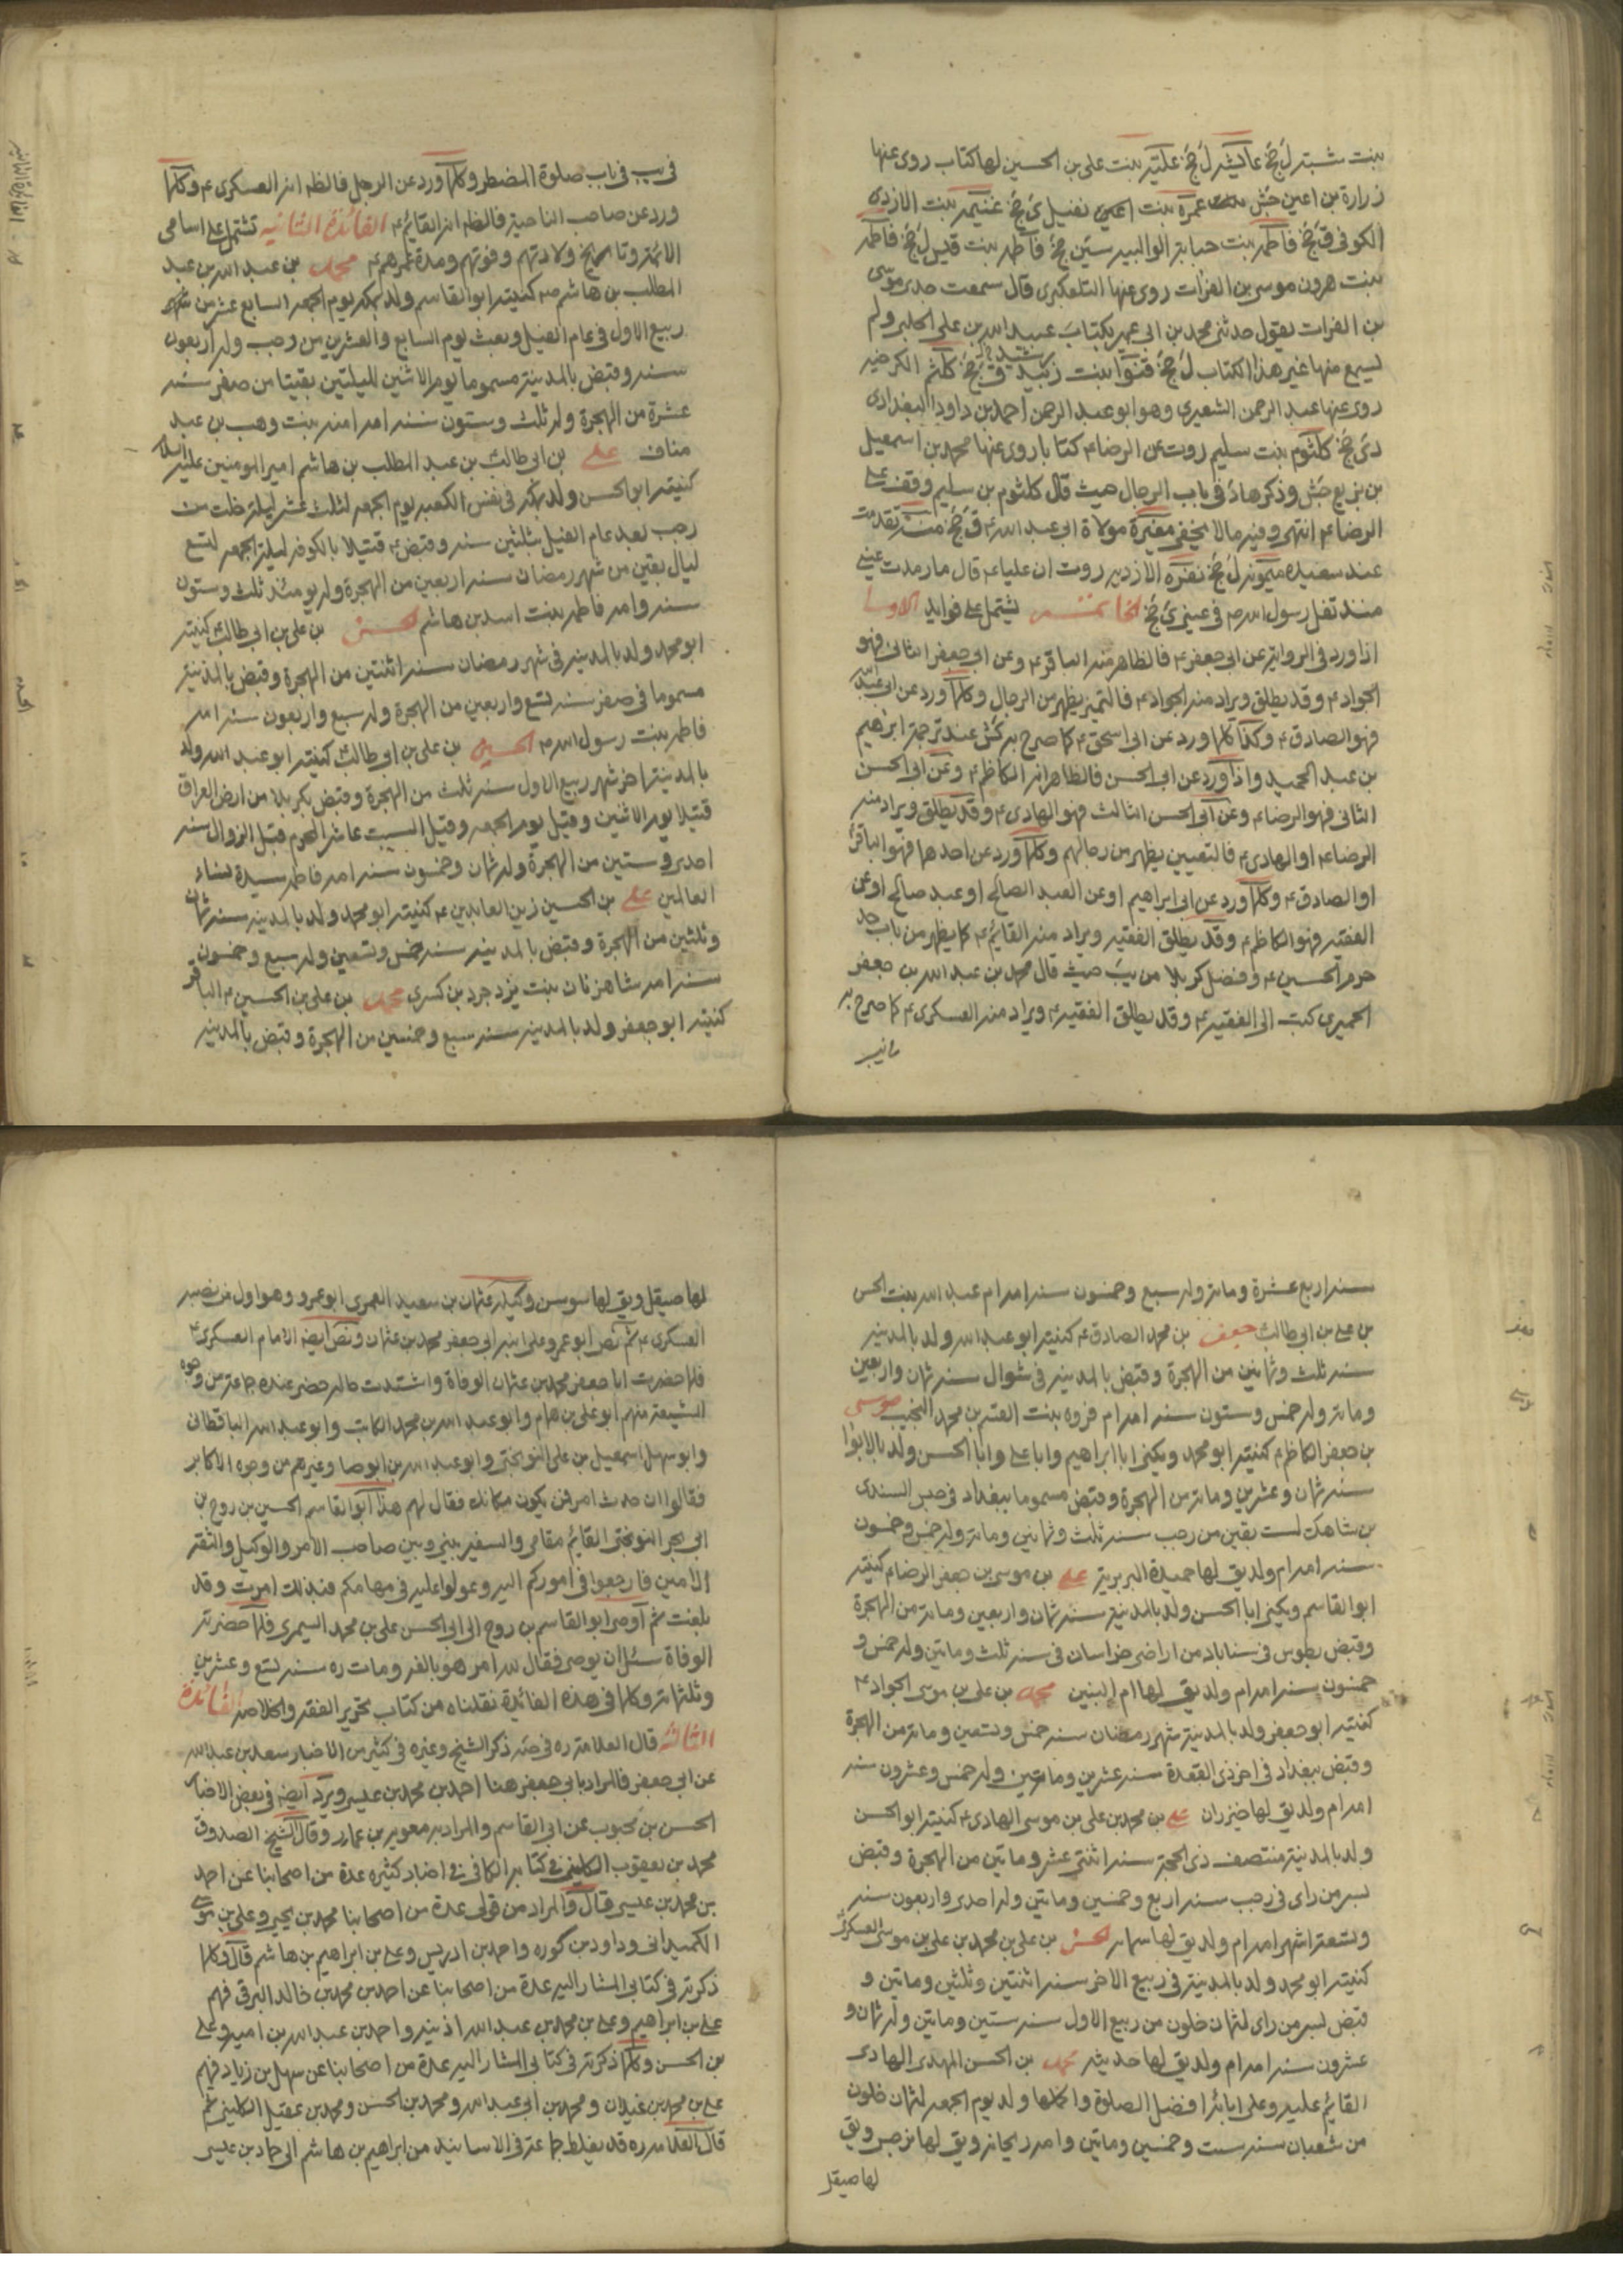 بنت شبتر ل جخ عايشه ل جخ علية بنت علي بن الحسين لها كتاب روى عنها
زرارة بن اعين جش عمرة بنت نفيل ى جخ غنيمه بنت الازدى
الكوفى ق جخ فاطمه بنت حبابة الوالبيه سين جخ فاطمه بنت قيس ل جخ فاطمه
بنت هرون موسى بن الفرات روى عنها التلعكبرى قال سمعت جدى موسى
بن الفرات يقول حدثنى محمد بن ابى عمير بكتاب عبيد الله بن على الحلبى ولم
يسمع منها غير هذا الكتاب ل جخ قنوا بنت رشيد ق جخ كلثم الكرخيه
روى عنها عبد الرحمن الشعيرى وهو ابو عبد الرحمن احمد بن داود البغدادى
دى جخ كلثوم بنت سليم روت عن الرضا ع كتابا روى عنها محمد بن اسمعيل
بن بزيع جش وذكرها د فى باب الرجال حيث قال كلثوم بن سليم وقف على
الرضا ع انتهى وفيه مالا يخفى مغيرة مولاة ابى عبد الله ع ق جخ منة تقدمت
عند سعيده ميمونه ل جخ نضره الازديه روت ان عليا ع قال ما رمدت عينى
منذ تفل رسول الله ص فى عينى ى جخ الخاتمة يشتمل على فوايد الاولى
اذا ورد فى الرواية عن ابى جعفر ع فالظاهر منه الباقر ع وعن ابى جعفر الثانى فهو
الجواد ع وقد يطلق ويراد منه الجواد ع فالتميز يظهر من الرجال وكلما ورد عن ابى عبد الله
فهو الصادق ع وكذا كلما ورد عن ابى اسحق ع كما صرح به كش عند ترجمة ابرهيم
بن عبد الحميد واذا ورد عن ابى الحسن فالظاهر انه الكاظم ع وعن ابى الحسن
الثانى فهو الرضا ع وعن ابى الحسن الثالث فهو الهادى ع وقد يطلق ويراد منه
الرضا ع او الهادى ع فالتعيين يظهر من رجالهم وكلما ورد عن احدهما فهو الباقر
او الصادق ع وكلما ورد عن ابى ابراهيم او عن العبد الصالح او عبد صالح او عن
الفقيه فهو الكاظم ع وقد يطلق الفقيه ويراد منه القائم ع كما يظهر من باب حد
حرم الحسين ع وفضل كربلا من يب حيث قال محمد بن عبد الله بن جعفر
الحميرى كتبت الى الفقيه ع وقد يطلق الفقيه ع ويراد منه العسكرى ع كما صرح به
فى يب فى باب صلوة المضطر وكلما ورد عن الرجل فالظه انه العسكرى ع وكلما
ورد عن صاحب الناحية فالظه انه القائم ع الفائدة الثانيه تشتمل على اسامى
الائمة وتاريخ ولادتهم وفوتهم ومدة عمرهم ع محمد بن عبد الله بن عبد
المطلب بن هاشم ص كنيته ابو القاسم ولد بمكه يوم الجمعه السابع عشر من شهر
ربيع الاول فى عام الفيل وبعث يوم السابع والعشرين من رجب وله اربعون
سنه وقبض بالمدينة مسموما يوم الاثنين لليلتين بقيتا من صفر سنه
عشرة من الهجرة وله ثلث وستون سنه امه امنه بنت وهب بن عبد
مناف على بن ابى طالب بن عبد المطلب بن هاشم امير المومنين عليه السلام
كنيته ابو الحسن ولد بمكه فى نفس الكعبه يوم الجمعه لثلث عشر ليلة خلت من
رجب بعد عام الفيل بثلثين سنه وقبض ع قتيلا بالكوفه ليلة الجمعه لتسع
ليال بقين من شهر رمضان سنه اربعين من الهجرة وله يومئذ ثلث وستون
سنه وامه فاطمه بنت اسد بن هاشم الحسن بن على بن ابى طالب ع كنيته
ابو محمد ولد بالمدينه فى شهر رمضان سنه اثنتين من الهجرة وقبض بالمدينة
مسموما فى صفر سنه تسع واربعين من الهجرة وله سبع واربعون سنه امه
فاطمه بنت رسول الله ص الحسين بن على بن ابى طالب ع كنيته ابو عبد الله ولد
بالمدينة اخر شهر ربيع الاول سنه ثلث من الهجرة وقبض بكربلا من ارض العراق
قتيلا يوم الاثنين وقيل يوم الجمعه وقيل السبت عاشر المحرم قبل الزوال سنه
احدى وستين من الهجرة وله ثمان وخمسون سنه امه فاطمه سيدة نساء
العالمين على بن الحسين زين العابدين ع كنيته ابو محمد ولد بالمدينه سنه ثمان
وثلثين من الهجرة وقبض بالمدينه سنه خمس وتسعين وله سبع وخمسون
سنه امه شاه زنان بنت يزدجرد بن كسرى محمد بن على بن الحسين ع الباقر
كنيته ابو جعفر ولد بالمدينه سنه سبع وخمسين من الهجرة وقبض بالمدينه
سنه اربع عشرة ومائة وله سبع وخمسون سنه امه ام عبد الله بنت الحسن
بن على بن ابى طالب ع جعفر بن محمد الصادق ع كنيته ابو عبد الله ولد بالمدينه
سنه ثلث وثمانين من الهجرة وقبض بالمدينه فى شوال سنه ثمان واربعين
ومائة وله خمس وستون سنه امه ام فروه بنت القسم بن محمد النجيب موسى
بن جعفر الكاظم ع كنيته ابو محمد ويكنى ابا ابراهيم وابا على وابا الحسن ولد بالابوا
سنه ثمان وعشرين ومائة من الهجرة وقبض مسموما ببغداد فى حبس السندى
بن شاهك لست بقين من رجب سنه ثلث وثمانين ومائة وله خمس وخمسون
سنه امه ام ولد يق لها حميدة البربرية على بن موسى بن جعفر الرضا ع كنيته
ابو القاسم ويكنى ابا الحسن ولد بالمدينة سنه ثمان واربعين ومائة من الهجرة
وقبض بطوس فى سناباد من اراضى خراسان فى سنه ثلث ومائتين وله خمس و
خمسون سنه امه ام ولد يق لها ام البنين محمد بن على بن موسى الجواد ع
كنيته ابو جعفر ولد بالمدينة شهر رمضان سنه خمس وتسعين ومائة من الهجرة
وقبض ببغداد فى اخر ذى القعدة سنه عشرين ومائتين وله خمس وعشرون سنه
امه ام ولد يق لها خيزران على بن محمد بن على بن موسى الهادى ع كنيته ابو الحسن
ولد بالمدينة منتصف ذى الحجة سنه اثنتى عشر ومائتين من الهجرة وقبض
بسر من راى فى رجب سنه اربع وخمسين ومائتين وله احدى واربعون سنه
وتسعة اشهر امه ام ولد يق لها سمانه الحسن بن على بن محمد بن على بن موسى العسكرى
كنيته ابو محمد ولد بالمدينة فى ربيع الاخر سنه اثنتين وثلثين ومائتين و
قبض بسر من راى لثمان خلون من ربيع الاول سنه ستين ومائتين وله ثمان و
عشرون سنه امه ام ولد يق لها حديثه محمد بن الحسن المهدى الهادى
القائم عليه وعلى ابائه افضل الصلوة واكملها ولد يوم الجمعه لثمان خلون
من شعبان سنه ست وخمسين ومائتين وامه ريحانه ويق لها نرجس ويق
لها صيقل
لها صيقل ويق لها سوسن وكيله عثمان بن سعيد العمرى ابو عمرو وهو اول من نصبه
العسكرى ع ثم نص ابو عمرو على ابنه ابى جعفر محمد بن عثمان ونص ايضه الامام العسكرى ع
فلما حضرت ابا جعفر محمد بن عثمان الوفاة واشتدت حاله حضر عنده جماعة من وجوه
الشيعة منهم ابو على بن همام وابو عبد الله بن محمد الكاتب وابو عبد الله الباقطانى
وابو سهل اسمعيل بن على النوبختى وابو عبد الله بن الوجنا وغيرهم من وجوه الاكابر
فقالوا ان حدث امر فمن يكون مكانك فقال لهم هذا ابو القاسم الحسين بن روح بن
ابى بحر النوبختى القائم مقامى والسفير بينى وبين صاحب الامر والوكيل والثقة
الامين فارجعوا فى اموركم اليه وعولوا عليه فى مهامكم فبذلك امرت وقد
بلغت ثم اوصى ابو القاسم بن روح الى ابى الحسن على بن محمد السيمرى فلما حضرته
الوفاة سئل ان يوصى فقال لله امر هو بالغه ومات ره سنه تسع وعشرين
وثلثمائة وكلما فى هذه الفائدة نقلناه من كتاب تحرير الفقه والخلاصه الفائدة
الثالثة قال العلامة ره فى صه ذكر الشيخ وغيره فى كثير من الاخبار سعد بن عبد الله
عن ابى جعفر فالمراد بابى جعفر هنا احمد بن محمد بن عيسى ويرد ايضه فى بعض الاخبار
الحسن بن محبوب عن ابى القاسم والمراد به معويه بن عمار وقال الشيخ الصدوق
محمد بن يعقوب الكلينى فى كتابه الكافى فى اخبار كثيره عدة من اصحابنا عن احمد
بن محمد بن عيسى قال والمراد من قولى عدة من اصحابنا محمد بن يحيى وعلى بن موسى
الكميدانى وداود بن كوره واحمد بن ادريس وعلى بن ابراهيم بن هاشم قال وكلما
ذكرته فى كتابى المشار اليه عدة من اصحابنا عن احمد بن محمد بن خالد البرقى فهم
على بن ابراهيم وعلى بن محمد بن عبد الله اذينه واحمد بن عبد الله بن اميه وعلى
بن الحسن وكلما ذكرته فى كتابى المشار اليه عدة من اصحابنا عن سهل بن زياد فهم
على بن محمد بن علان ومحمد بن ابى عبد الله ومحمد بن الحسن ومحمد بن عقيل الكلينى ثم
قال العلامه ره قد يغلط جماعة فى الاسانيد من ابراهيم بن هاشم الى حماد بن عيسى